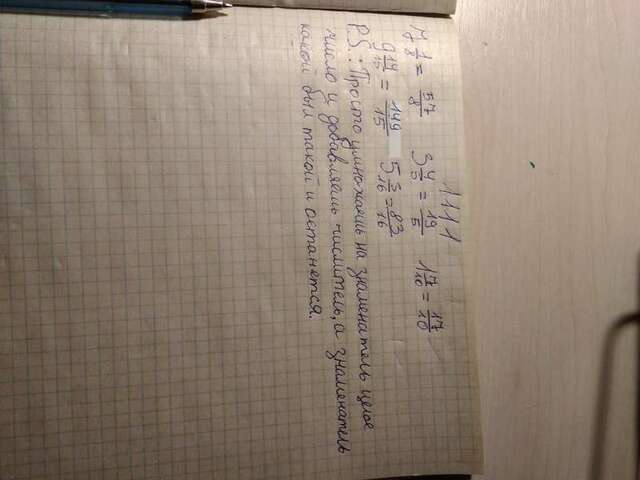 1111
7 1/8 = 57/8 3 4/5 = 19/5 1 7/10 = 17/10
9 14/15 = 149/15 5 3/16 = 83/16
P.S: Просто умножаешь на знаменатель целое
число и добавляешь числитель, а знаменатель
какой был такой и останется.